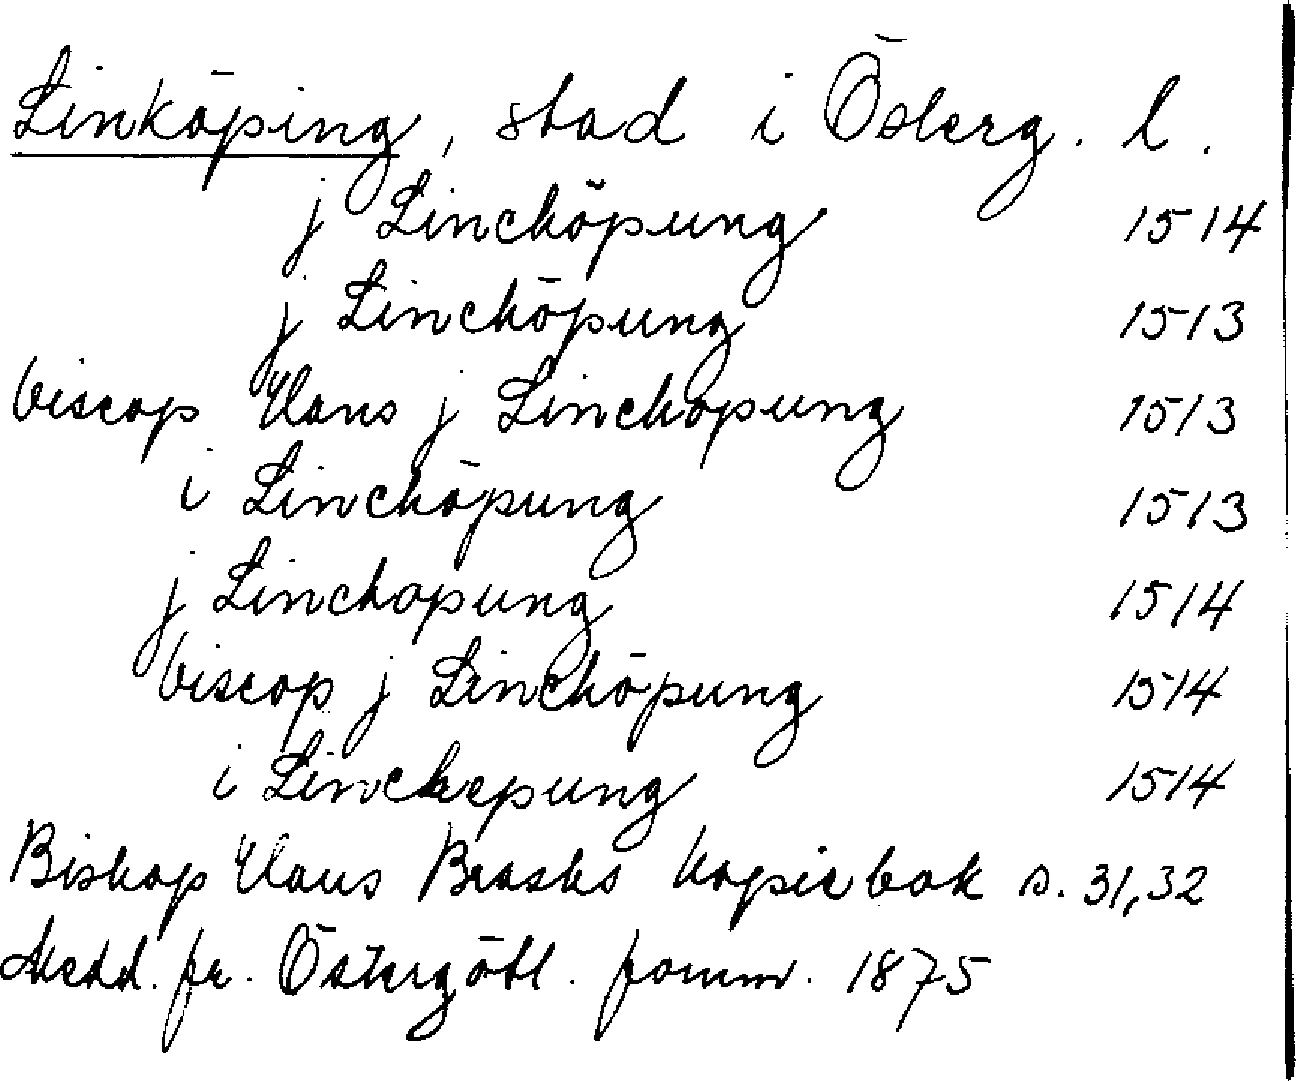 Linköping, stad i Österg. l.
j Linchöpung 1514
j Linchöpung 1513
biscop Hans j Linchopung 1513
i Linchöpung 1513
j Linchopung 1514
biscop j Linchöpung 1514
i Linchepung 1514
Biskop Hans Brasks kopiebok s. 31,32
Medd. fr. Östergötl. fornm. 1875